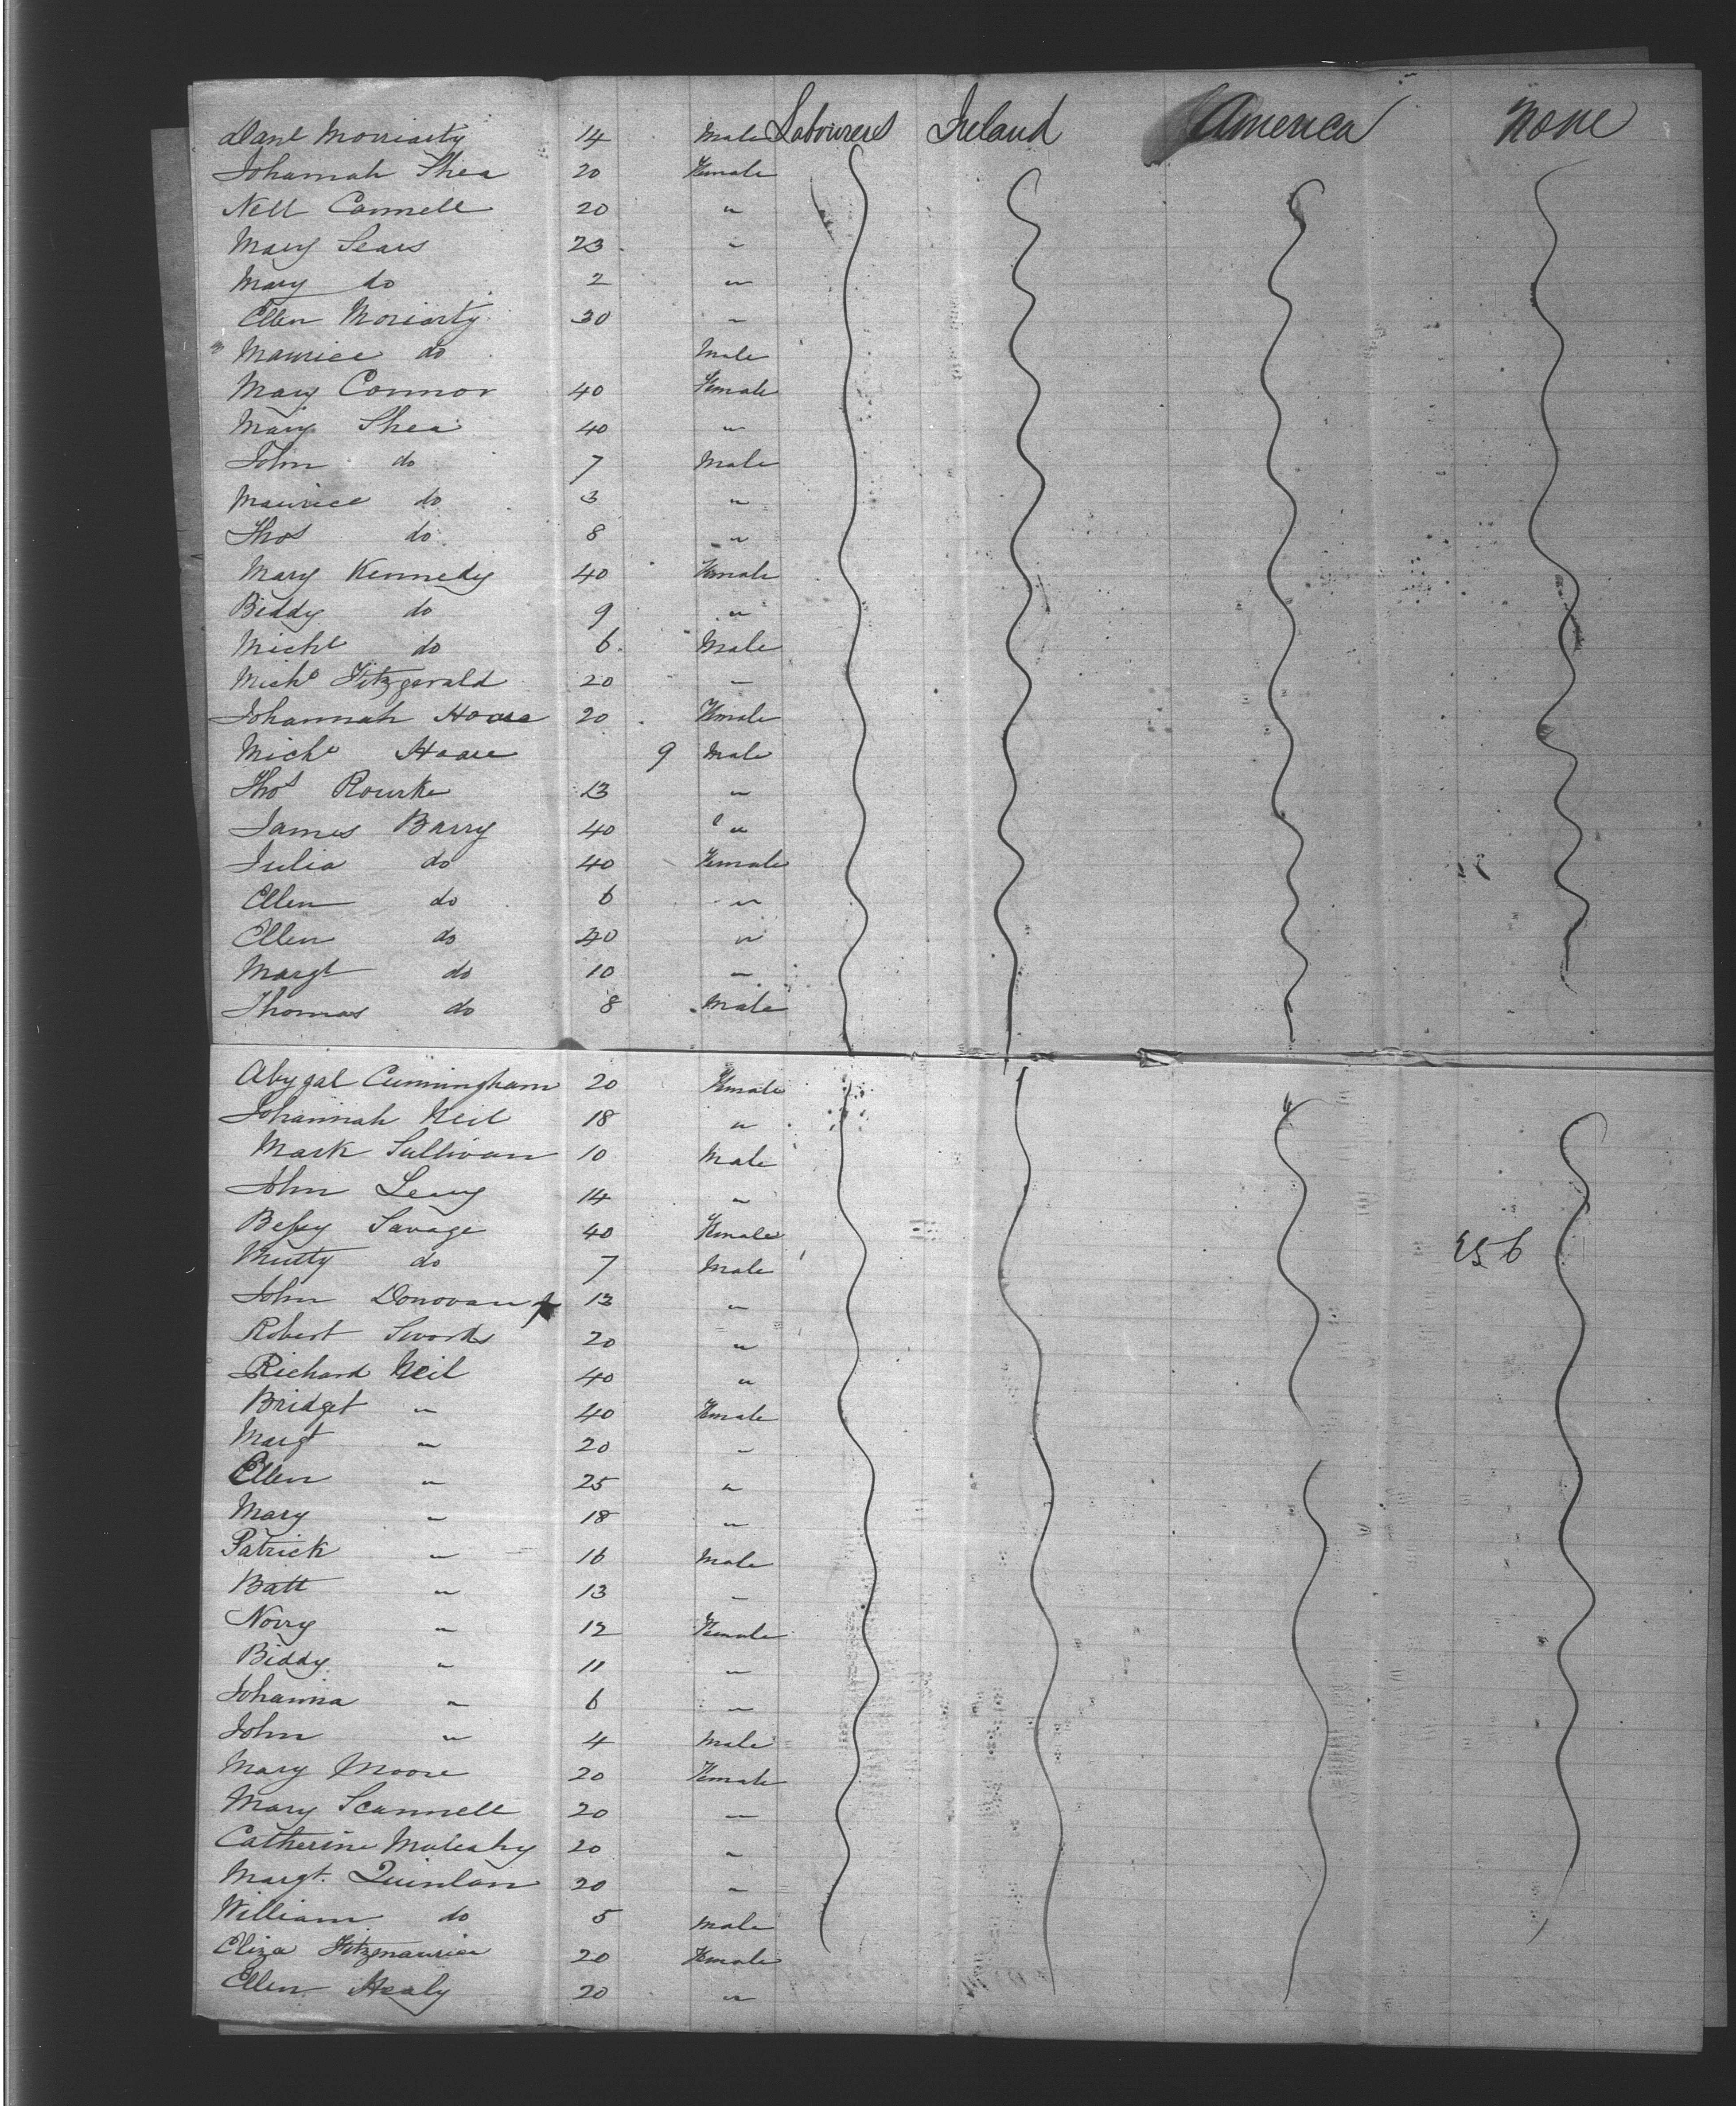 Danl Morriarty 14 Male Labourers Ireland America None
Johannah Shea 20 Female
Nell Connell 20 "
Mary Sears 23 "
Mary do 2 "
Ellen Moriarty 30 "
" Maurice do Male
Mary Connor 40 Female
Mary Shea 40 "
John do 7 Male
Maurice do 3 "
Thos do 8 "
Mary Kennedy 40 Female
Biddy do 9 "
Michl do 6 Male
Michl Fitzgerald 20 "
Johannah Hoare 20 Female
Michl Hoare 9 Male
Thos Rourke 13 "
James Barry 40 "
Julia do 40 Female
Ellen do 6 "
Ellen do 40 "
Margt do 10 "
Thomas do 8 Male
Abygal Cunningham 20 Female
Johannah Neil 18 "
Mark Sullivan 10 Male
John Leary 14 "
Bessy Savage 40 Female
Mutty do 7 Male
John Donovan 13 "
Robert Swords 20 "
Richard Neil 40 "
Bridget " 40 Female
Margt " 20 "
Ellen " 25 "
Mary " 18 "
Patrick " 16 Male
Batt " 13 "
Norry " 12 Female
Biddy " 11 "
Johanna " 6 "
John " 4 Male
Mary Moore 20 Female
Mary Scannell 20 "
Catherine Mulcahy 20 "
Margt. Quinlan 20 "
William do 5 Male
Eliza Fitzmaurice 20 Female
Ellen Healy 20 "